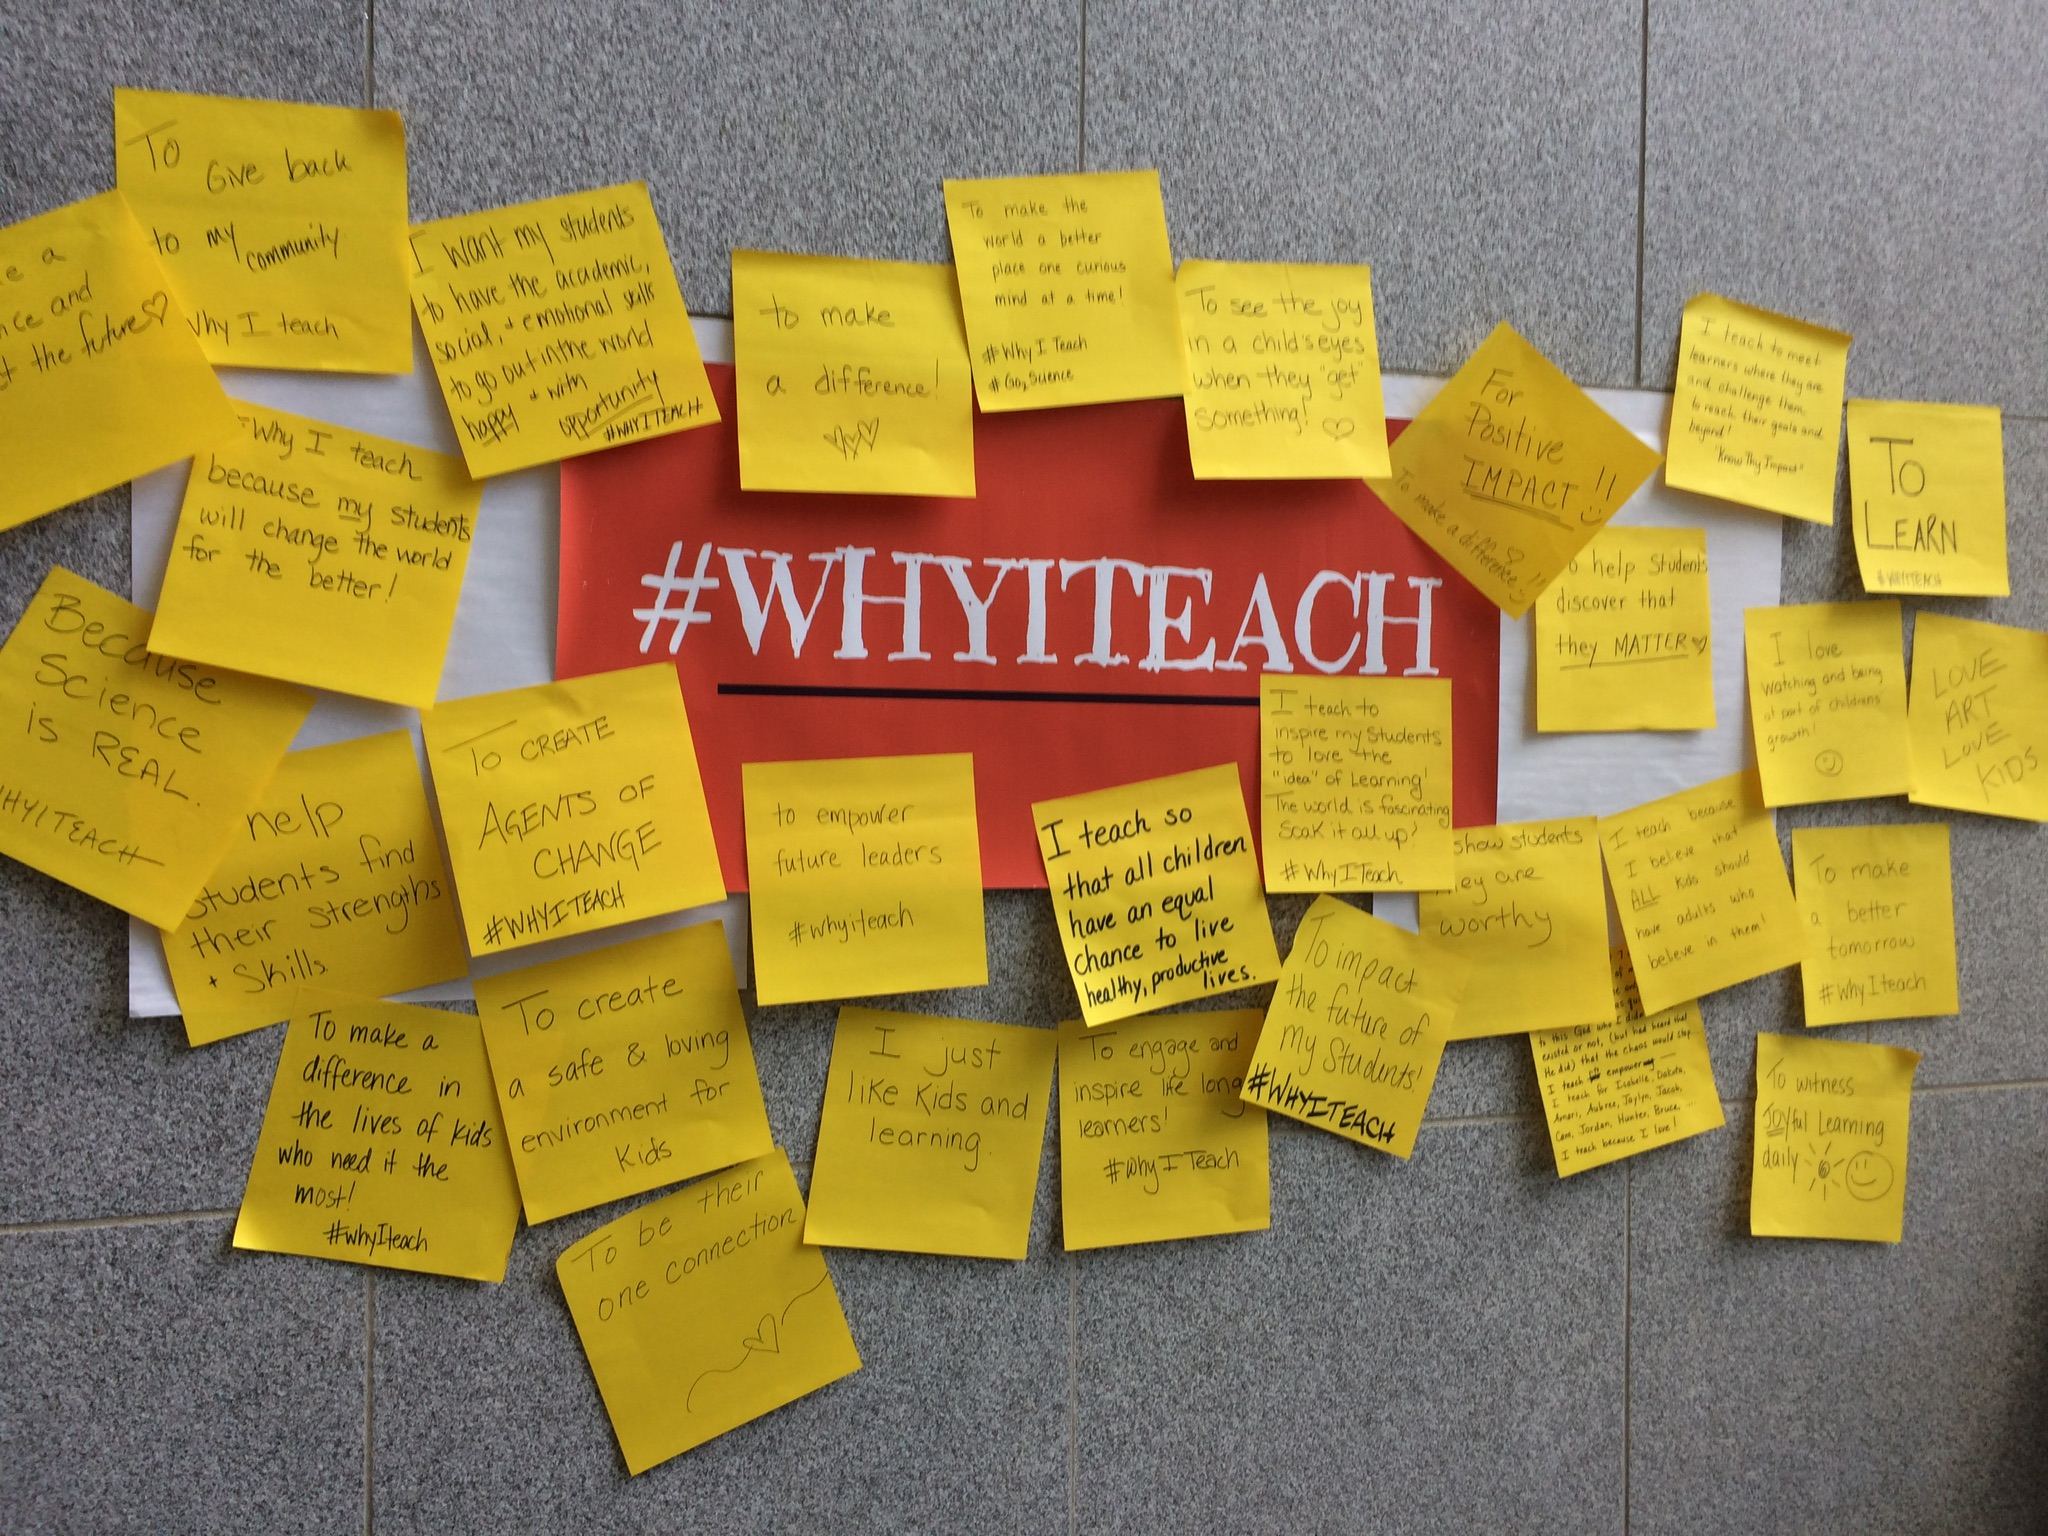 To Give back
to my community
Why I teach
a
and
the future
I want my students
to have the academic,
social, + emotional skills
to go out in the world
happy + with
opportunity
#WHYITEACH
to make
a difference!
To make the
world a better
place one curious
mind at a time!
#Why I Teach
#Go, Science
To see the joy
in a child's eyes
when they "get"
something!
For
Positive
IMPACT!!
To make a difference!!
I teach to meet
learners where they are
and challenge them
to reach their goals and
beyond!
"Know Thy Impact"
TO
LEARN
#WHYITEACH
#Why I teach
because my students
will change the world
for the better!
#WHYITEACH
help Students
discover that
they MATTER
I love
watching and being
a part of childrens'
growth!
LOVE
ART
LOVE
KIDS
Because
Science
is REAL.
WHYITEACH
help
students find
their strengths
+ Skills
To CREATE
AGENTS OF
CHANGE
#WHYITEACH
to empower
future leaders
#whyiteach
I teach so
that all children
have an equal
chance to live
healthy, productive
lives.
I teach to
inspire my Students
to love the
"idea" of Learning!
The world is fascinating
Soak it all up!
#WhyITeach
show students
they are
worthy
I teach because
I believe that
ALL kids should
have adults who
believe in them!
To make
a better
tomorrow
#WhyIteach
To make a
difference in
the lives of kids
who need it the
most!
#whyIteach
To create
a safe & loving
environment for
kids
To be their
one connection
I just
like kids and
learning.
To engage and
inspire life long
learners!
#WhyITeach
To impact
the future of
my Students!
#WHYITEACH
to this God who I didn't
existed or not, (but had heard that
He did) that the chaos would stop
I teach empower
I teach for Isabelle, Dakota,
Amari, Aubree, Jaylyn, Jacob,
Cam, Jordan, Hunter, Bruce, ...
I teach because I love!
To witness
Joyful Learning
daily